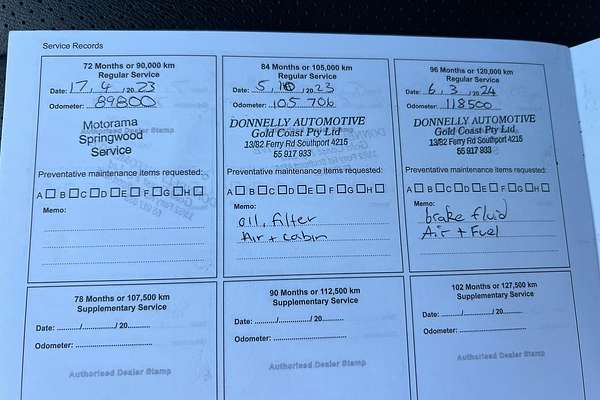 Service Records
72 Months or 90,000 km
Regular Service
Date: 17, 4 /2023
Odometer: 89800
Motorama
Springwood
Service
Authorised Dealer Stamp
Preventative maintenance items requested:
A B C D E F G H
Memo:
84 Months or 105,000 km
Regular Service
Date: 5, 10 /2023
Odometer: 105 706
DONNELLY AUTOMOTIVE
Gold Coast Pty Ltd
13/82 Ferry Rd Southport 4215
55 917 933
Preventative maintenance items requested:
A B C D E F G H
Memo:
oil, filter
Air + cabin
96 Months or 120,000 km
Regular Service
Date: 6, 3 /2024
Odometer: 118500
DONNELLY AUTOMOTIVE
Gold Coast Pty Ltd
13/82 Ferry Rd Southport 4215
55 917 933
Preventative maintenance items requested:
A B C D E F G H
Memo:
brake fluid
Air + Fuel
78 Months or 107,500 km
Supplementary Service
Date: ........../........../ 20..........
Odometer: ..............................
Authorised Dealer Stamp
90 Months or 112,500 km
Supplementary Service
Date: ........../........../ 20..........
Odometer: ..............................
Authorised Dealer Stamp
102 Months or 127,500 km
Supplementary Service
Date: ........../........../ 20..........
Odometer: ..............................
Authorised Dealer Stamp